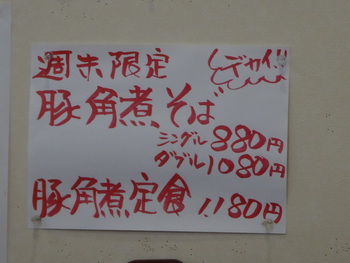 週末限定 デカイ!!
豚角煮そば
シングル 880円
ダブル 1080円
豚角煮定食 1.180円